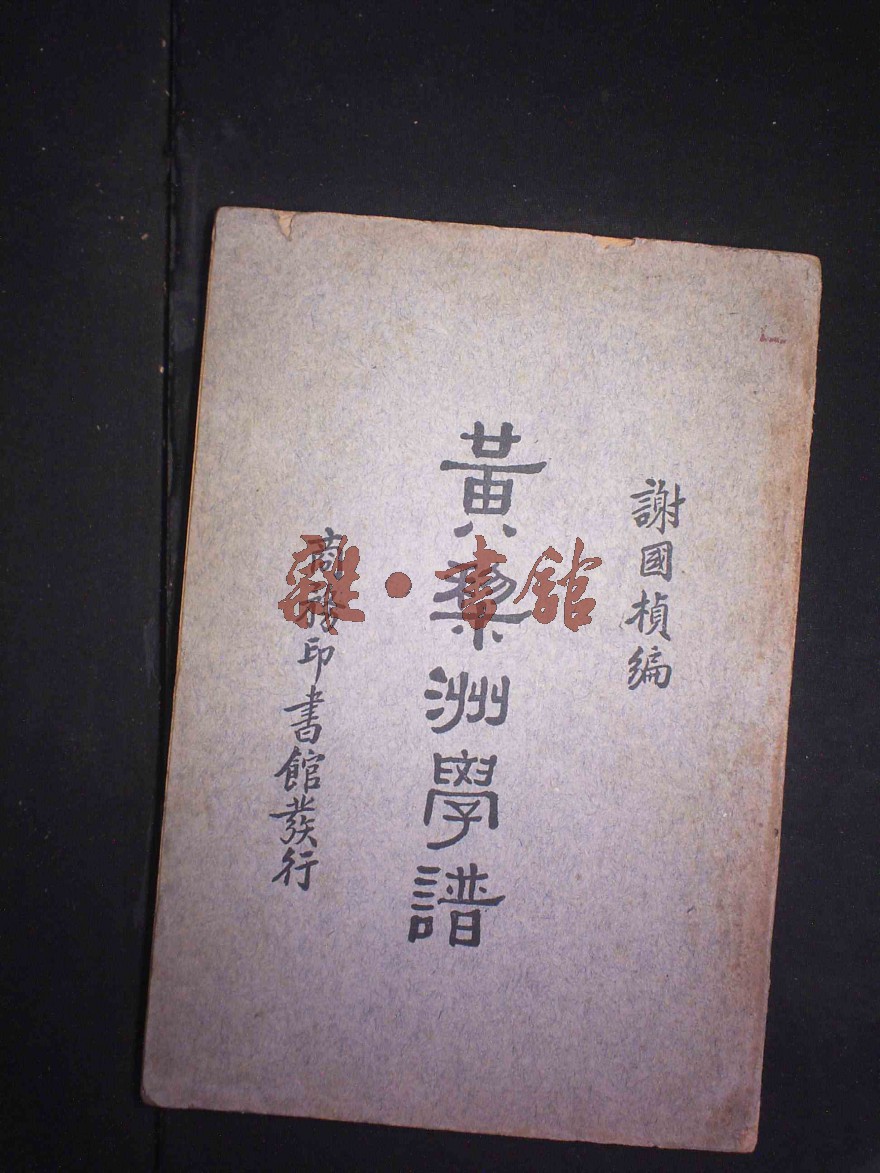 謝國楨編
黃棃洲學譜
商務印書館發行
雜·書館